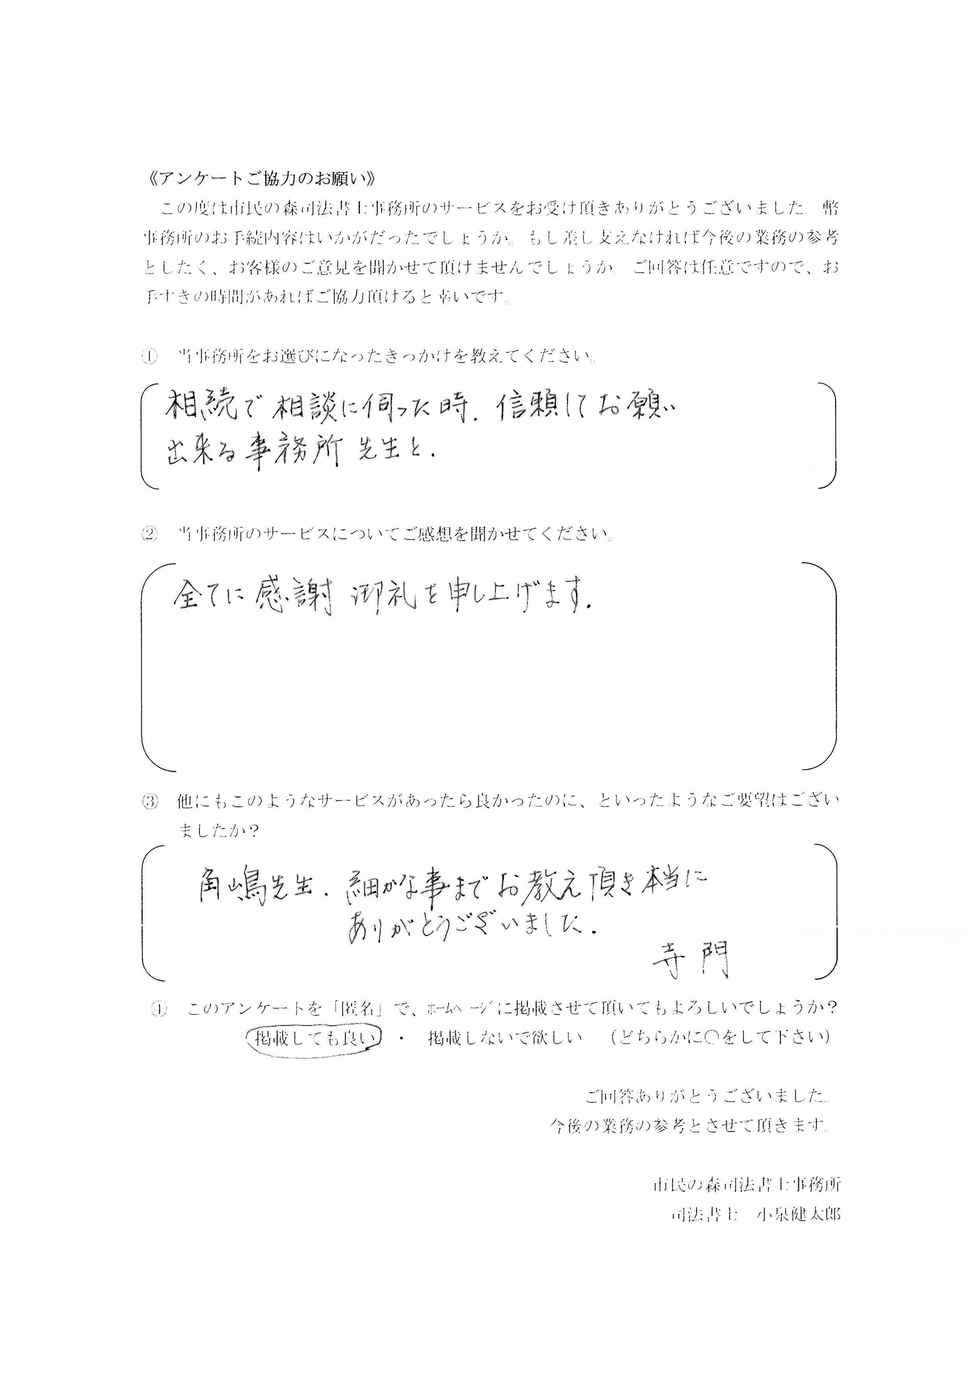 《アンケートご協力のお願い》
この度は市民の森司法書士事務所のサービスをお受け頂きありがとうございました。幣
事務所のお手続内容はいかがだったでしょうか。もし差し支えなければ今後の業務の参考
としたく、お客様のご意見を聞かせて頂けませんでしょうか。ご回答は任意ですので、お
手すきの時間があればご協力頂けると幸いです。
① 当事務所をお選びになったきっかけを教えてください。
相続で相談に伺った時、信頼してお願い
出来る事務所 先生と。
② 当事務所のサービスについてご感想を聞かせてください。
全てに感謝 御礼を申し上げます。
③ 他にもこのようなサービスがあったら良かったのに、といったようなご要望はござい
ましたか？
角嶋先生、細かな事までお教え頂き本当に
ありがとうございました。
寺門
④ このアンケートを「匿名」で、ﾎｰﾑﾍﾟｰｼﾞに掲載させて頂いてもよろしいでしょうか？
掲載しても良い ・ 掲載しないで欲しい （どちらかに○をして下さい）
ご回答ありがとうございました。
今後の業務の参考とさせて頂きます。
市民の森司法書士事務所
司法書士 小泉健太郎